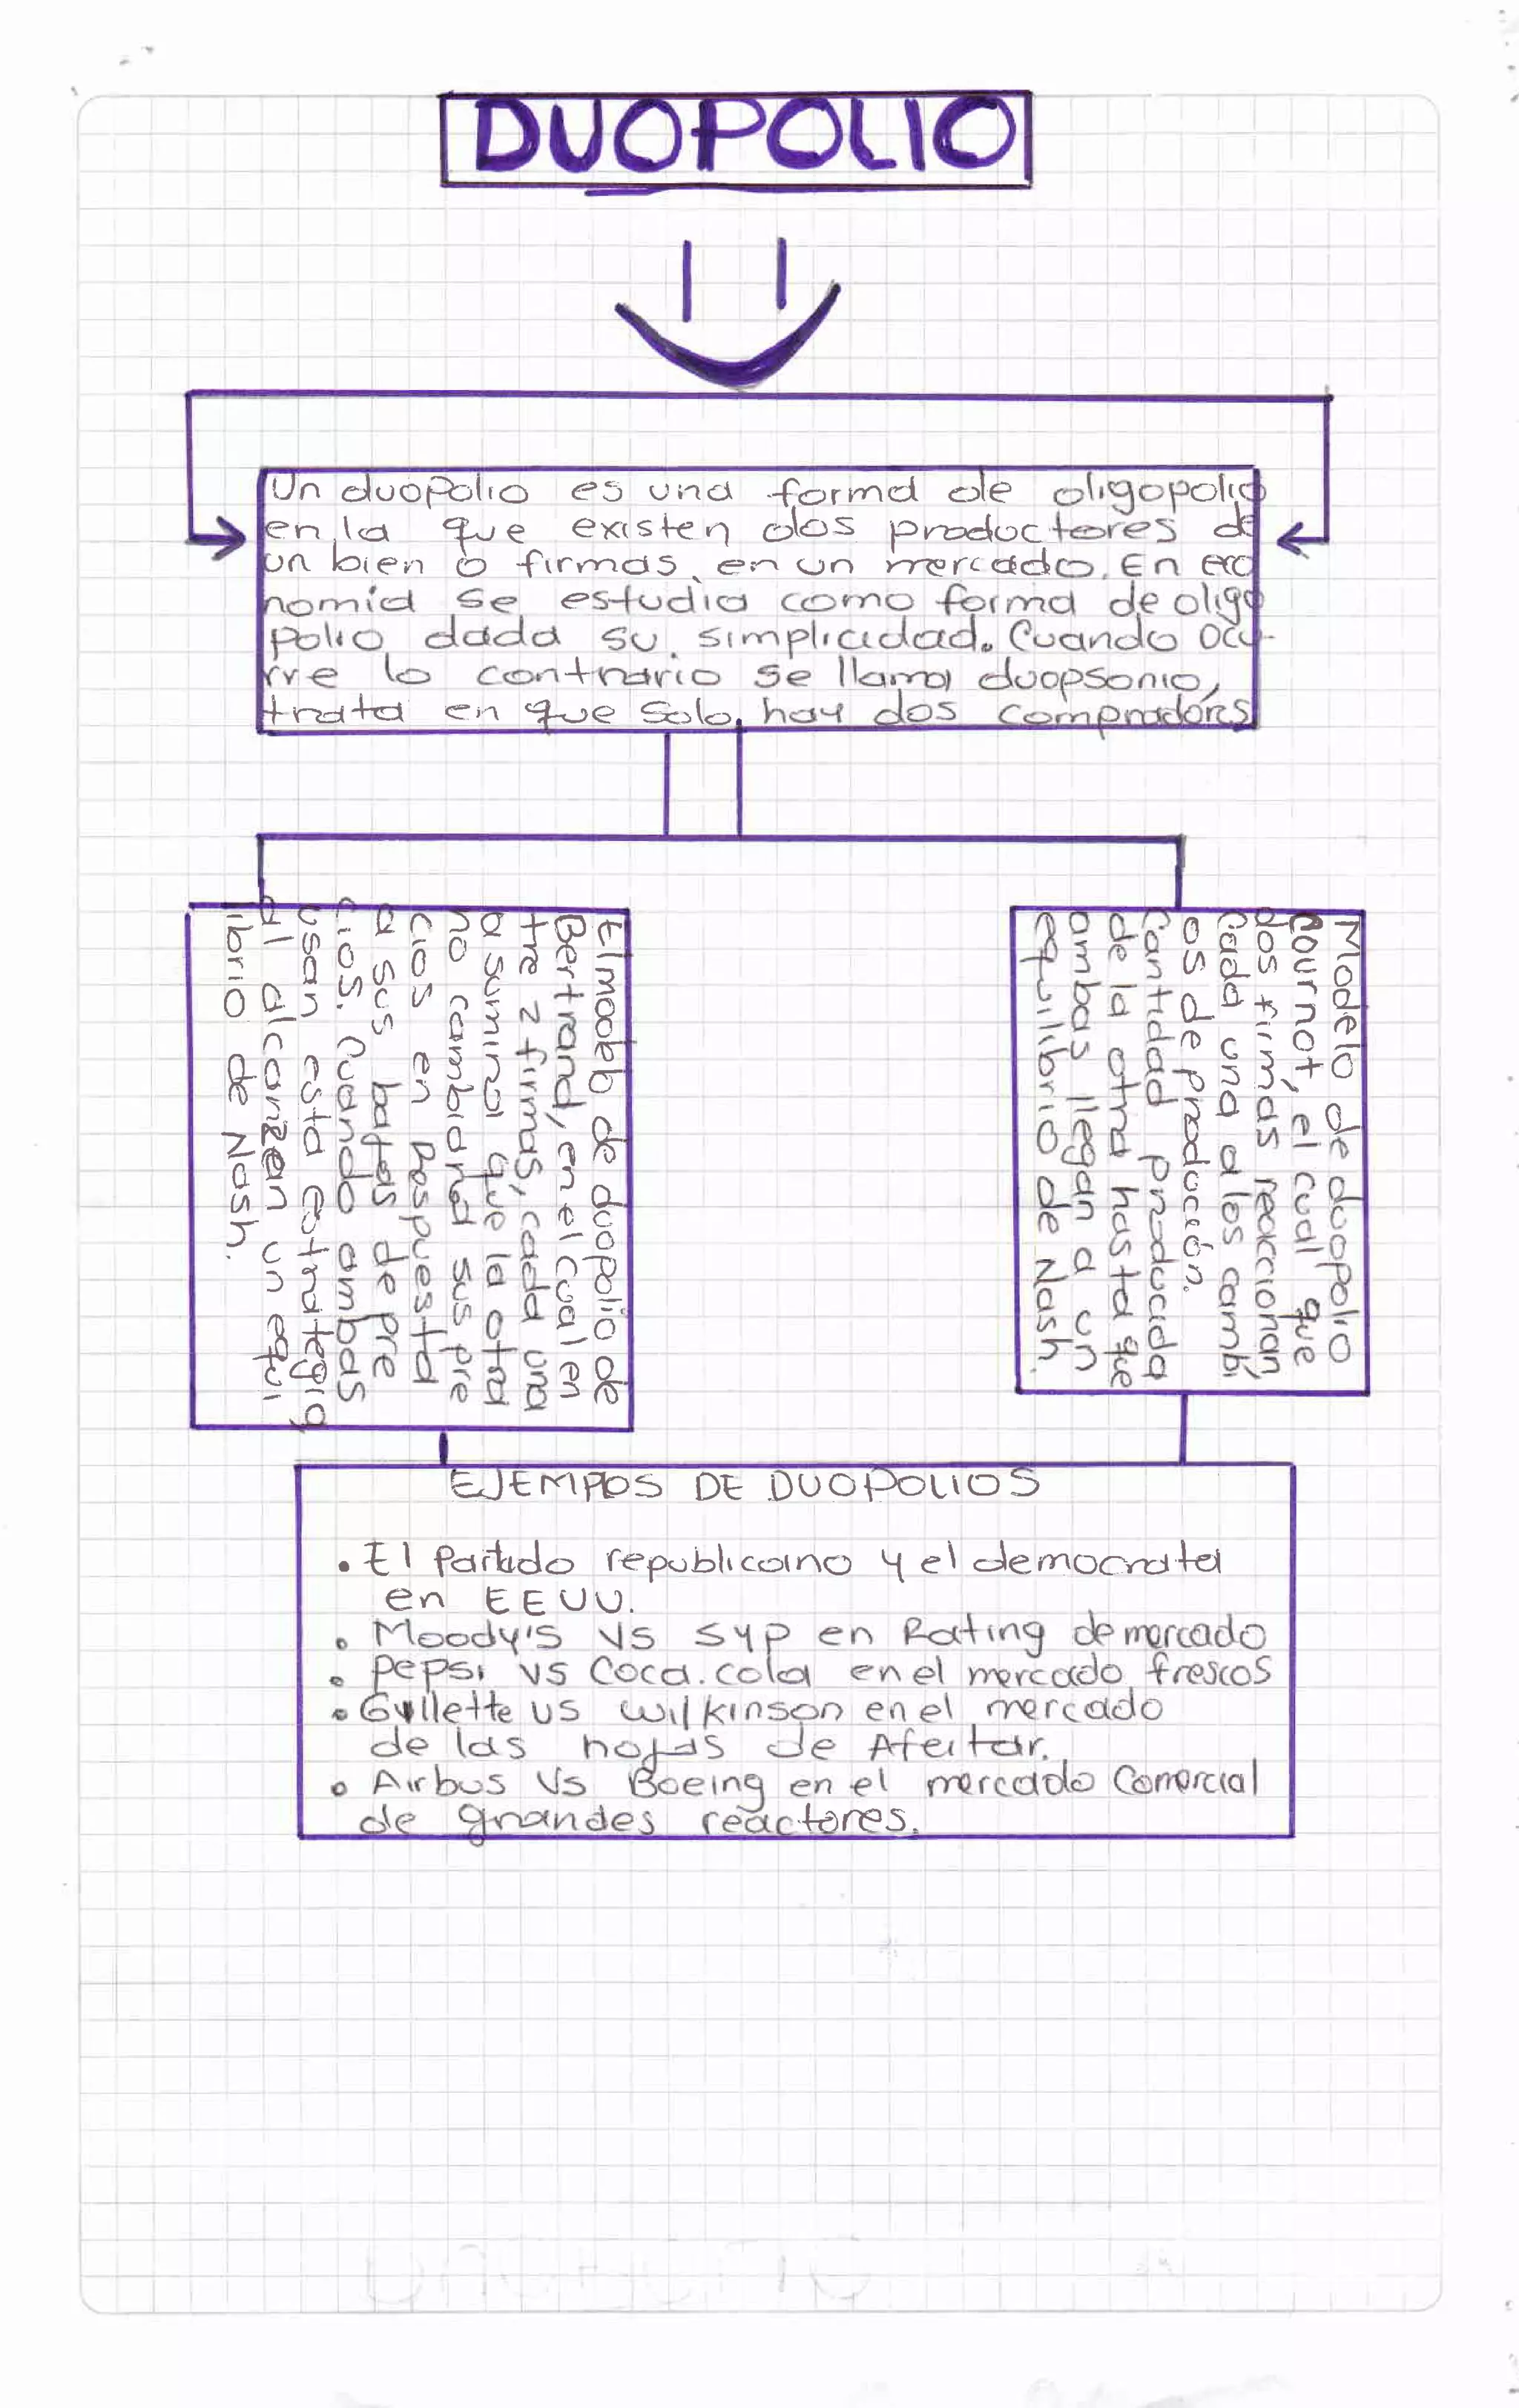 DUOPOLIO
Un duopolio es una forma de oligopolio
en la que existen dos productores de
un bien o firmas en un mercado. En eco
nomia se estudia como forma de oligo
polio dada su simplicidad. Cuando ocu-
rre lo contrario se llama duopsonio,
trata en que solo hay dos compradores
El modelo de duopolio de
Bertrand, en el cual en
tre 2 firmas, cada una
asumira que la otra
no cambiara sus pre
cios en respuesta
a sus bajas de pre
cios. Cuando ambas
usan esta estrategia
al alcanzan un equi
ibrio de Nash.
Modelo de duopolio
Cournot, el cual que
dos firmas reaccionan
Cada una a los cambi
os de producción.
Cantidad producida
de la otra hasta que
ambas llegan a un
equilibrio de Nash.
EJEMPOS DE DUOPOLIOS
• El Partido republicano y el democrata
en EEUU.
• Moody's Vs Syp en Rating de mercado
• Pepsi vs Coca.cola en el mercado frescos
• Gillette vs Wilkinson en el mercado
de las hojas de Afeitar.
• Airbus Vs Boeing en el mercado Comercial
de grandes reactores.